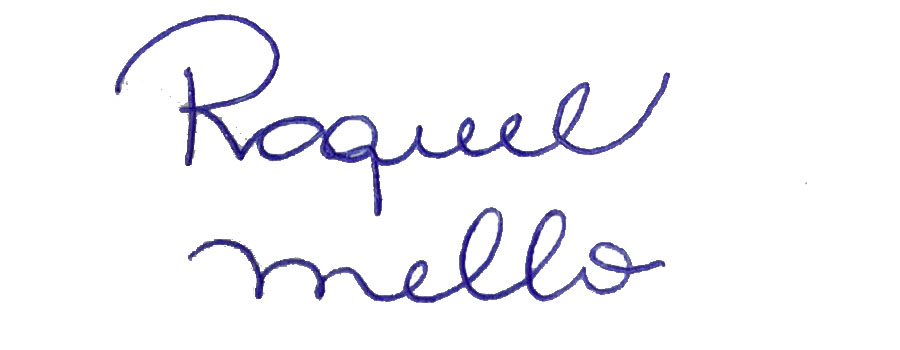 Raquel
Mello